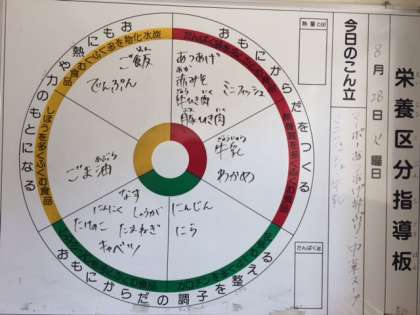 栄養区分指導板
8月28日火曜日
今日のこん立
熱量
たんぱく質
おもにからだをつくる
おもにからだの調子を整える
おもに熱や力のもとになる
ご飯
でんぷん
ごま油
あつあげ
赤みそ
牛ひき肉
豚ひき肉
ミニフィッシュ
牛乳
わかめ
なす
にんにく しょうが
たけのこ たまねぎ
キャベツ
にんじん
にら